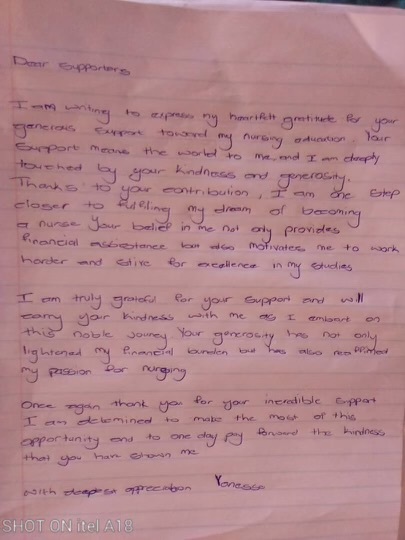 Dear supporters
I am writing to express my heartfelt gratitude for your
generous support toward my nursing education. Your
support means the world to me, and I am deeply
touched by your kindness and generosity.
Thanks to your contribution, I am one step
closer to fulfiling my dream of becoming
a nurse Your belief in me not only provides
financial assistance but also motivates me to work
harder and strive for excellence in my studies
I am truly grateful for your support and will
carry your kindness with me as I embark on
this noble journey Your generosity has not only
lightened my financial burden but has also reaffirmed
my passion for nursing
Once again thank you for your incredible support
I am determined to make the most of this
opportunity and to one day pay forward the kindness
that you have shown me
with appreciation Vanessa
SHOT ON itel A18